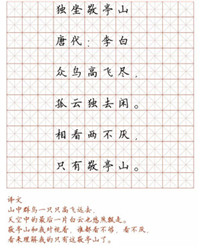 独坐敬亭山
唐代：李白
众鸟高飞尽，
孤云独去闲。
相看两不厌，
只有敬亭山。
译文
山中群鸟一只只高飞远去，
天空中的最后一片白云也悠然飘走。
敬亭山和我对视着，谁都看不够，看不厌，
看来理解我的只有这敬亭山了。